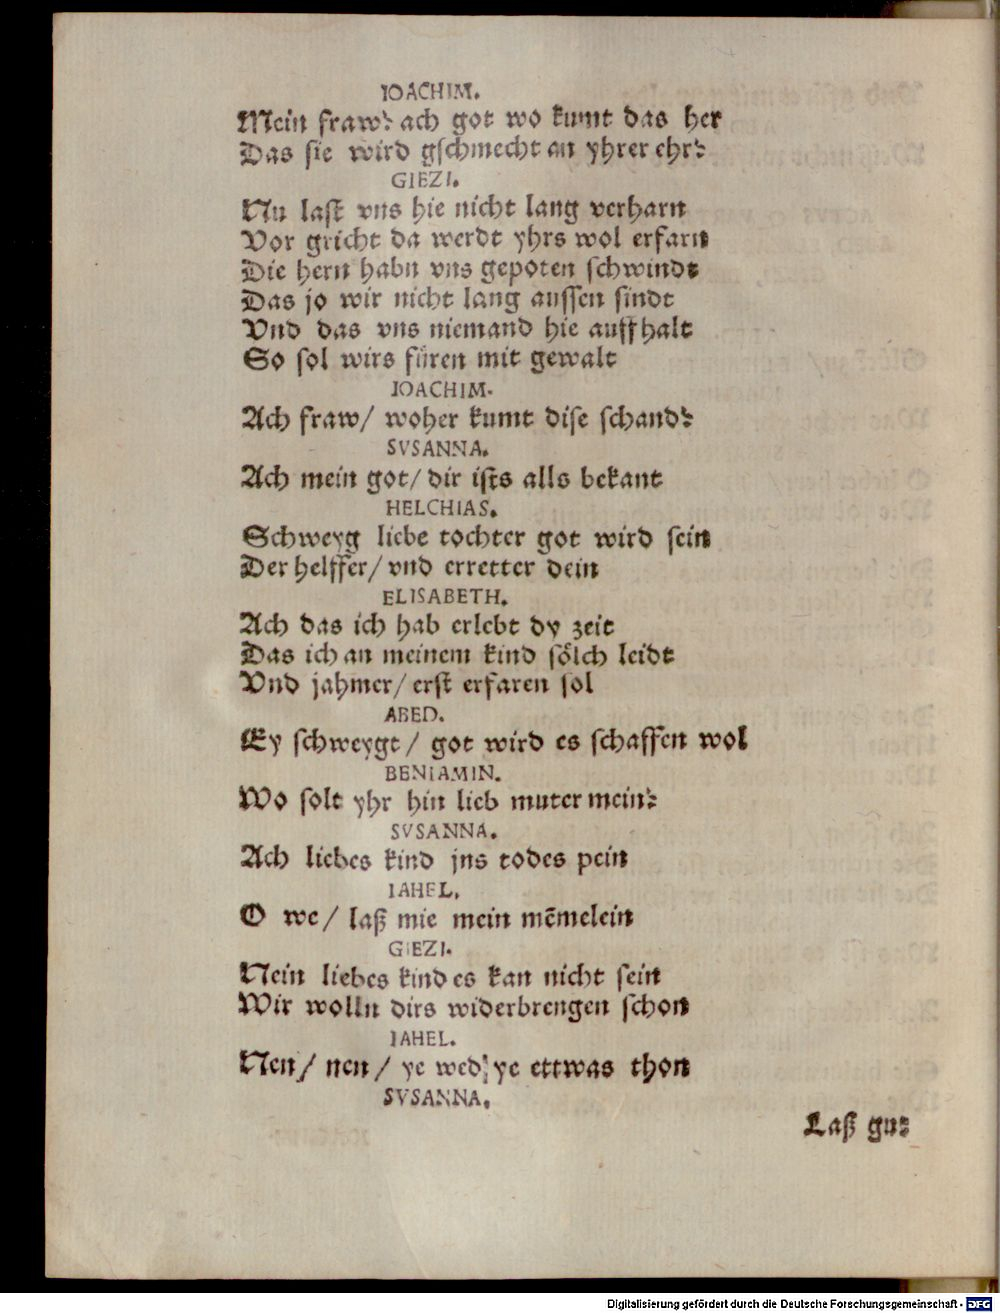 IOACHIM.
Mein fraw? ach got wo kumt das her
Das sie wird gschmecht an yhrer ehr?
GIEZI.
Nu last vns hie nicht lang verharn
Vor gricht da werdt yhrs wol erfarn
Die hern habn vns gepoten schwindt
Das jo wir nicht lang aussen sindt
Vnd das vns niemand hie auffhalt
So sol wirs füren mit gewalt
IOACHIM.
Ach fraw/ woher kumt dise schand?
SVSANNA.
Ach mein got/ dir ists alls bekant
HELCHIAS.
Schweyg liebe tochter got wird sein
Der helffer/ vnd erretter dein
ELISABETH.
Ach das ich hab erlebt dy zeit
Das ich an meinem kind sölch leidt
Vnd jahmer/ erst erfaren sol
ABED.
Ey schweygt/ got wird es schaffen wol
BENIAMIN.
Wo solt yhr hin lieb muter mein?
SVSANNA.
Ach liebes kind jns todes pein
IAHEL.
O we/ laß mie mein mēmelein
GIEZI.
Nein liebes kind es kan nicht sein
Wir wolln dirs widerbrengen schon
IAHEL.
Nen/ nen/ ye wed ye ettwas thon
SVSANNA.
Laß gut
Digitalisierung gefördert durch die Deutsche Forschungsgemeinschaft - DFG